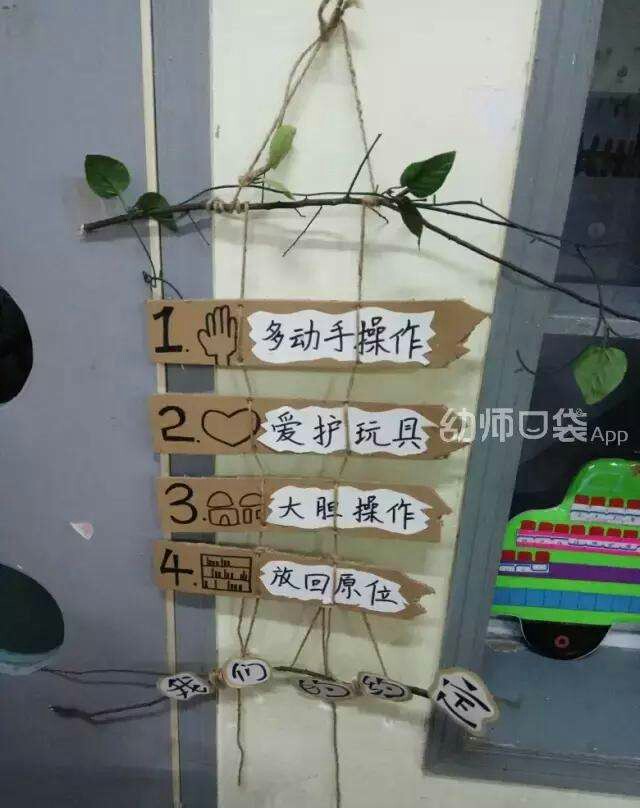 1. 多动手操作
2. 爱护玩具
3. 大胆操作
4. 放回原位
我们的约定
幼师口袋App